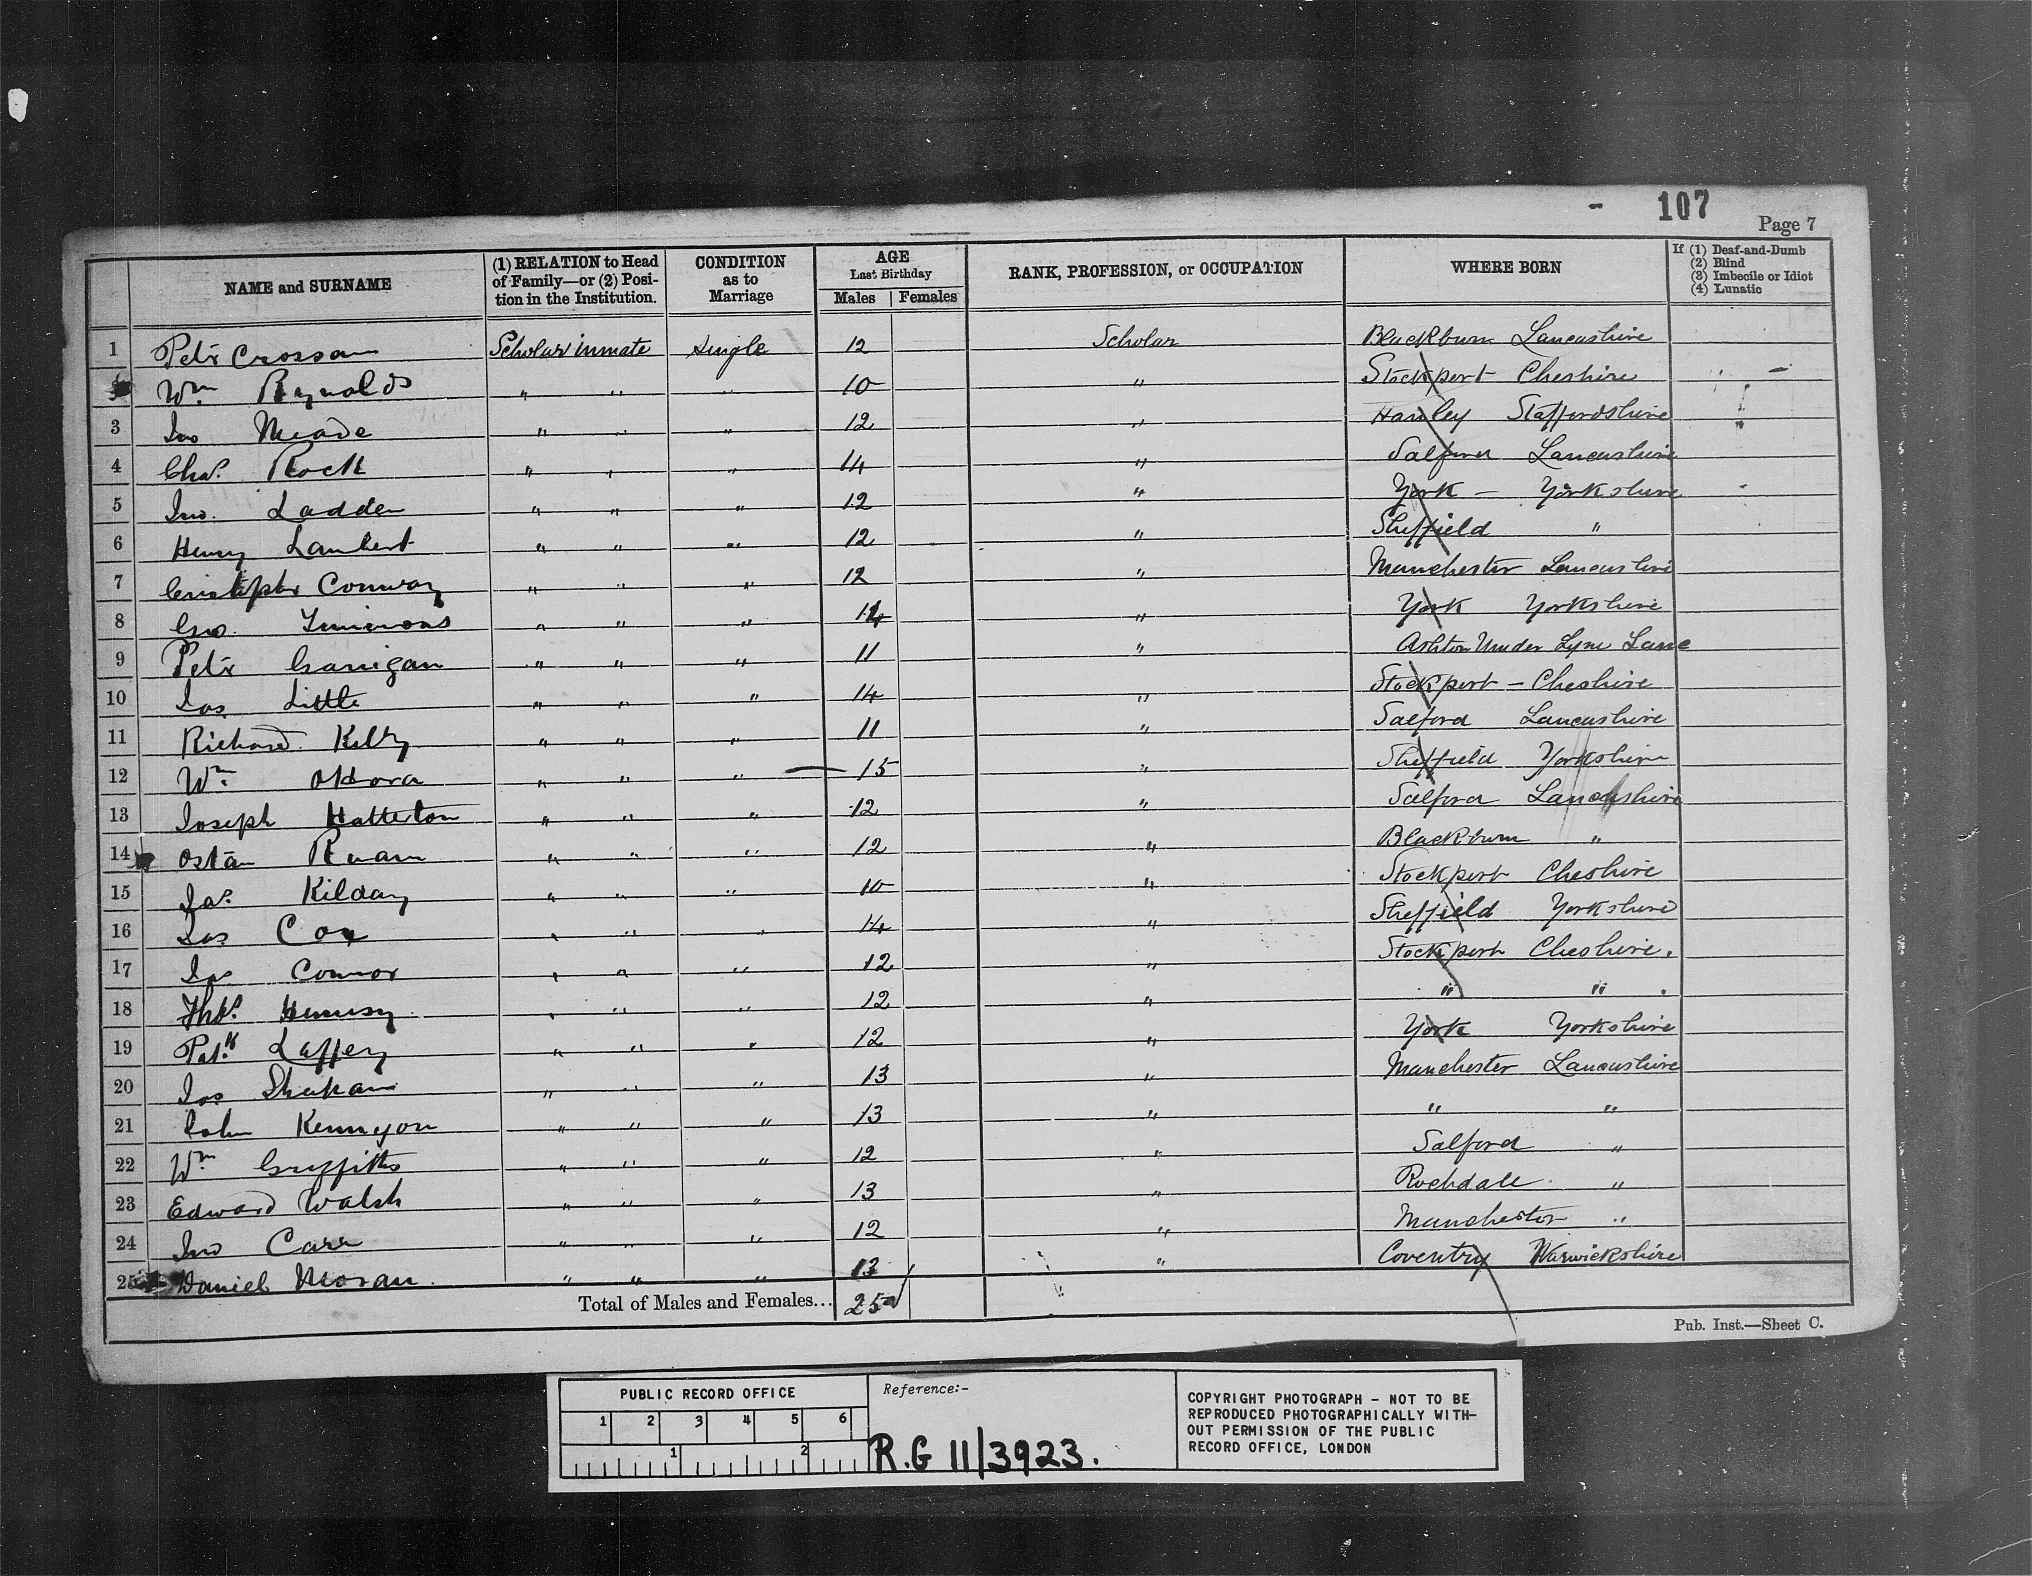 107
Page 7
NAME and SURNAME
(1) RELATION to Head of Family—or (2) Position in the Institution.
CONDITION as to Marriage
AGE Last Birthday
Males Females
RANK, PROFESSION, or OCCUPATION
WHERE BORN
If (1) Deaf-and-Dumb
(2) Blind
(3) Imbecile or Idiot
(4) Lunatic
1 Petr Crossan Scholar inmate Single 12 Scholar Blackburn Lancashire
Wm Reynolds " " " 10 " Stockport Cheshire
3 Jno Meade " " " 12 " Hanley Staffordshire
4 Chas. Rock " " " 14 " Salford Lancashire
5 Jno. Ladden " " " 12 " York - Yorkshire
6 Henry Lambert " " " 12 " Sheffield "
7 Cristipher Conway " " " 12 " Manchester Lancashire
8 Geo. Timmons " " " 14 " York Yorkshire
9 Petr Garrigan " " " 11 " Ashton Under Lyne Lanc
10 Jas Little " " " 14 " Stockport - Cheshire
11 Richard Kelly " " " 11 " Salford Lancashire
12 Wm. OHora " " " 15 " Sheffield Yorkshire
13 Joseph Hatterton " " " 12 " Salford Lancashire
14 Ruam " " " 12 " Blackburn "
15 Jas. Kilday " " " 10 " Stockport Cheshire
16 Jas Cox " " " 14 " Sheffield Yorkshire
17 Jas Connor " " " 12 " Stockport Cheshire.
18 Thos. " " " 12 " " "
19 Patk Laffey " " " 12 " York Yorkshire
20 Jas " " " 13 " Manchester Lancashire
21 John Kennyon " " " 13 " " "
22 Wm Griffiths " " " 12 " Salford "
23 Edward Walsh " " " 13 " Rochdale "
24 Jno Carr " " " 12 " Manchester "
25 Daniel Moran. " " " 13 " Coventry Warwickshire
Total of Males and Females... 25
Pub. Inst.—Sheet C.
PUBLIC RECORD OFFICE
1 2 3 4 5 6
1 2
Reference:-
R.G 11/3923.
COPYRIGHT PHOTOGRAPH - NOT TO BE
REPRODUCED PHOTOGRAPHICALLY WITH-
OUT PERMISSION OF THE PUBLIC
RECORD OFFICE, LONDON